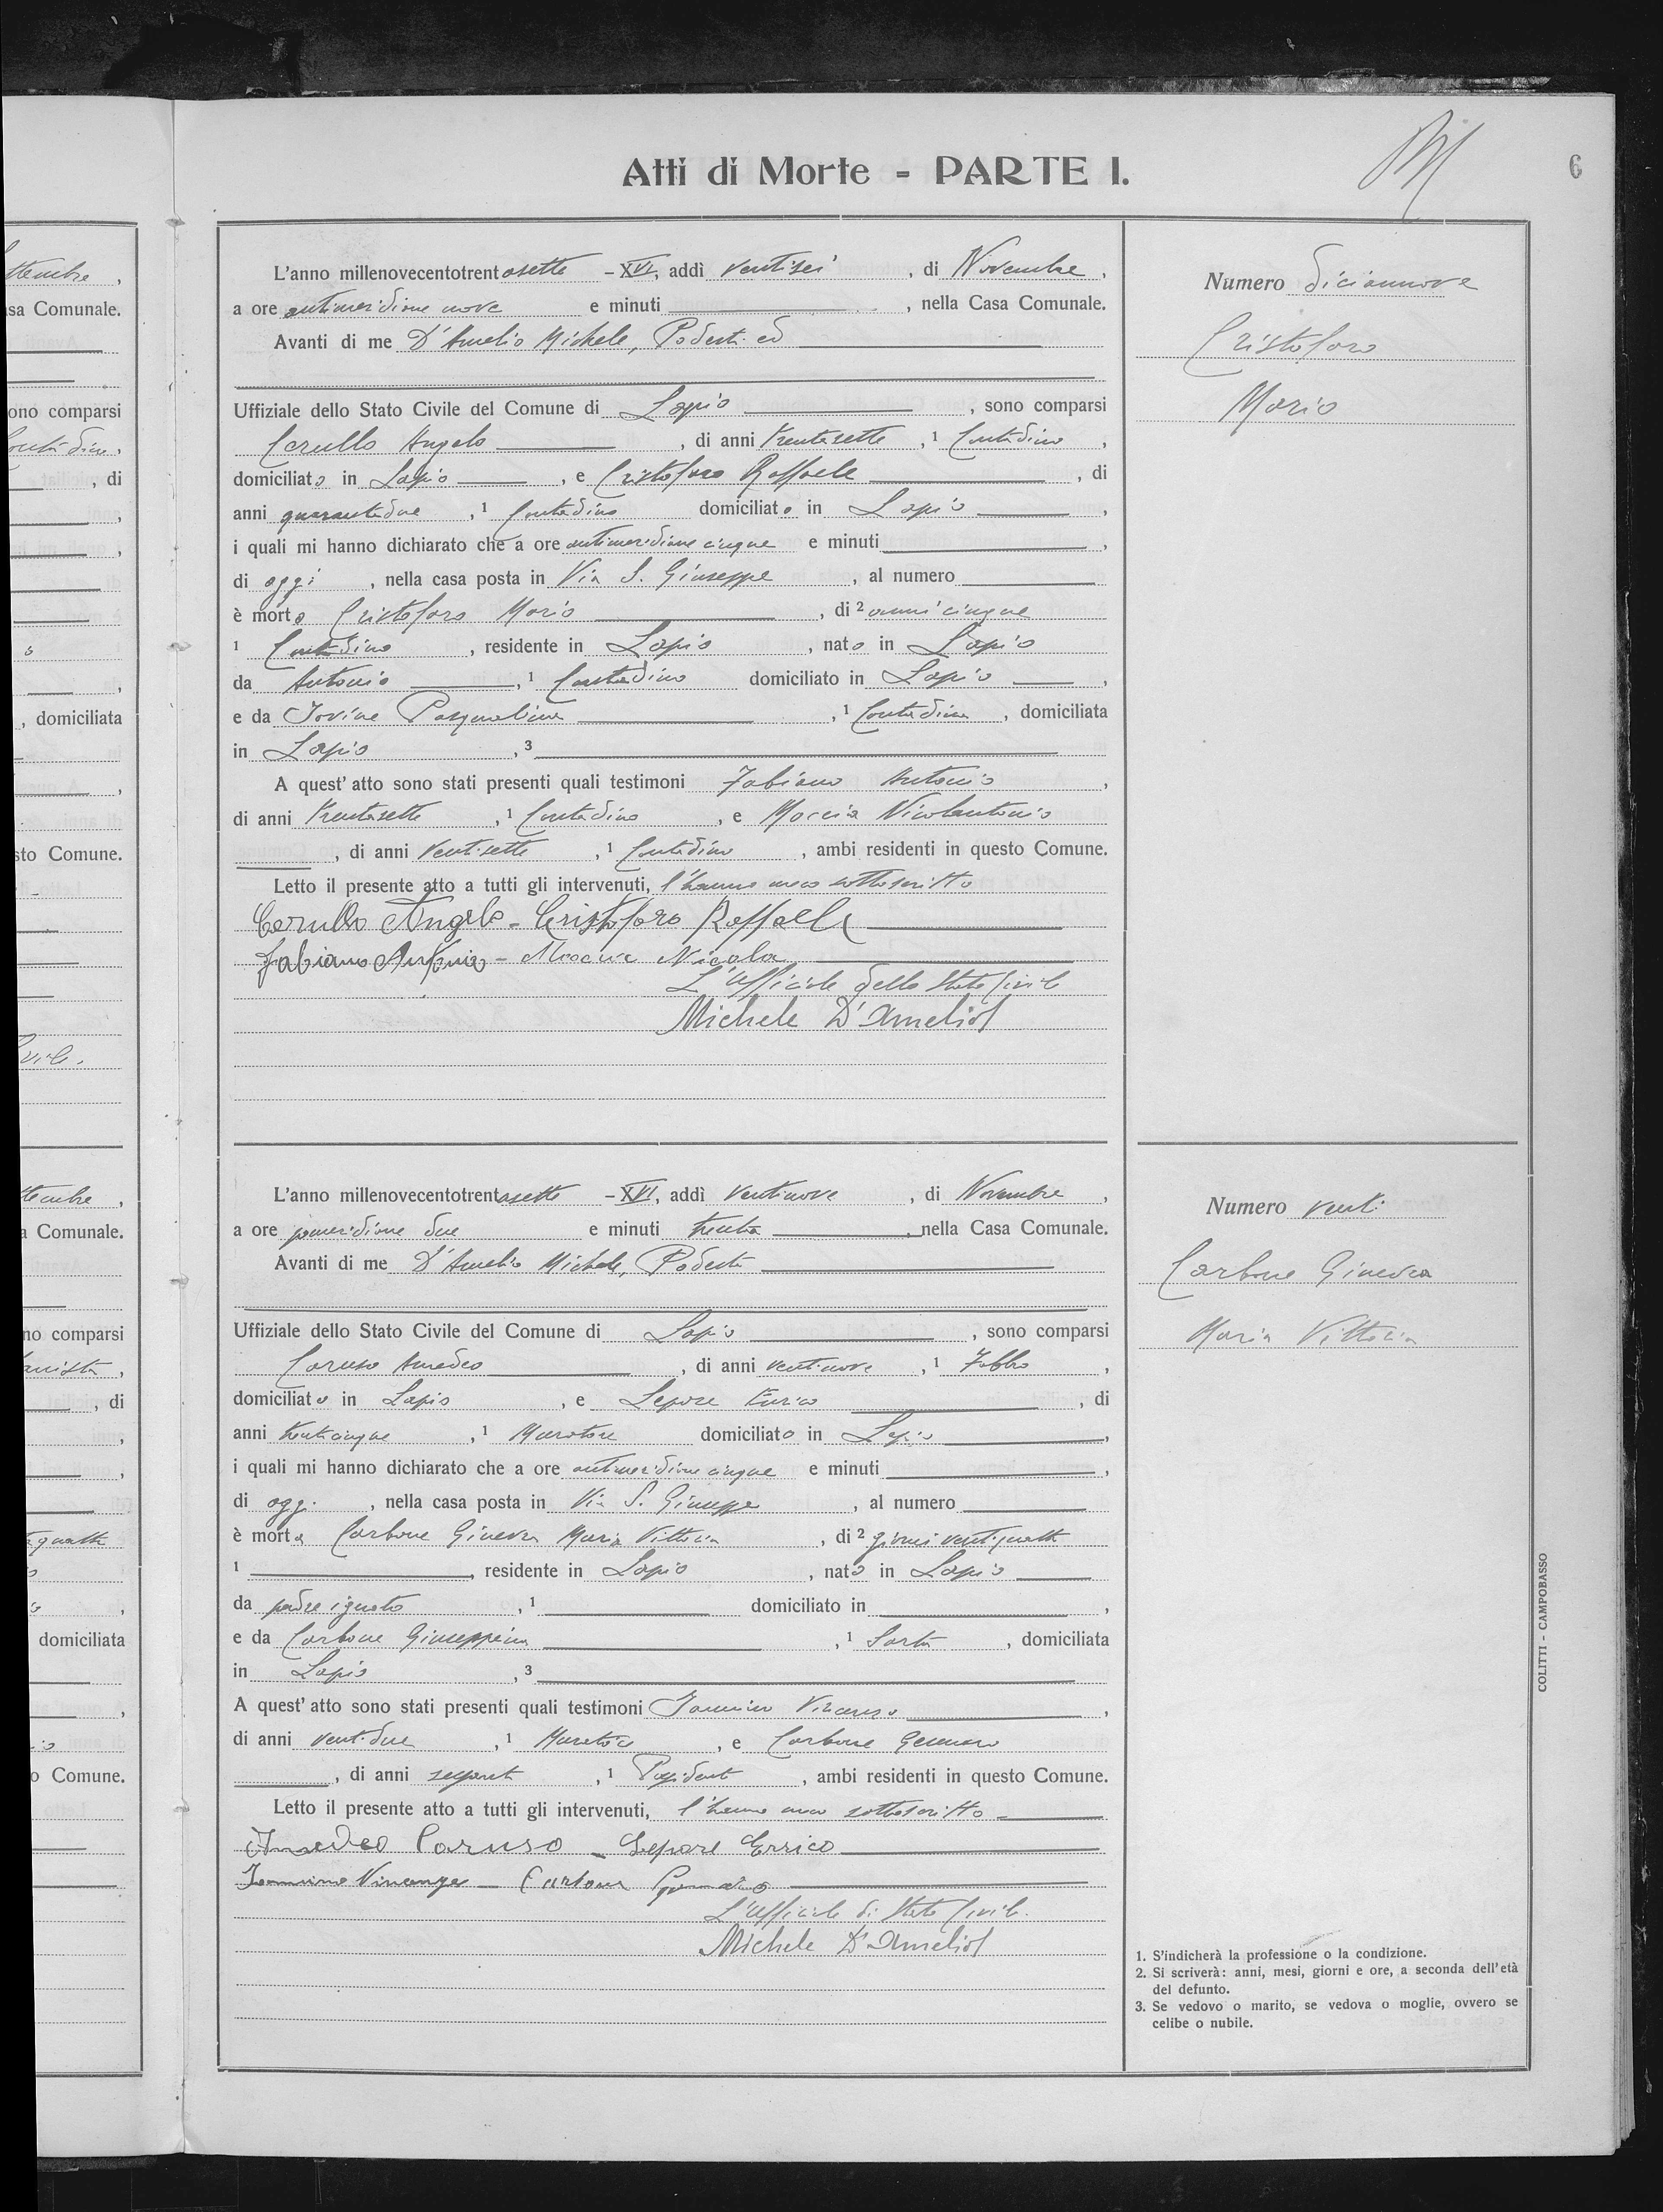 Atti di Morte - PARTE I.
6
L'anno millenovecentotrentasette - XVI, addì ventisei, di Novembre,
a ore antimeridiane nove e minuti, nella Casa Comunale.
Avanti di me D'Amelio Michele, Podestà ed
Uffiziale dello Stato Civile del Comune di Lapio, sono comparsi
Cerullo Angelo, di anni trentasette, 1 Contadino,
domiciliato in Lapio, e Cristofaro Raffaele, di
anni quarantadue, 1 Contadino domiciliato in Lapio,
i quali mi hanno dichiarato che a ore antimeridiane cinque e minuti,
di oggi, nella casa posta in Via S. Giuseppe, al numero
è morto Cristofaro Mario, di 2 anni cinque
1 Contadino, residente in Lapio, nato in Lapio
da Antonio, 1 Contadino domiciliato in Lapio,
e da Iovine Pasqualina, 1 Contadina, domiciliata
in Lapio, 3
A quest' atto sono stati presenti quali testimoni Fabiano Antonio,
di anni trentasette, 1 Contadino, e Moccia Nicolantonio
, di anni ventisette, 1 Contadino, ambi residenti in questo Comune.
Letto il presente atto a tutti gli intervenuti, l'hanno meco sottoscritto
Cerullo Angelo - Cristofaro Raffaele
Fabiano Antonio - Moccia Nicola
L'Ufficiale dello Stato Civile
Michele D'Amelio
Numero diciannove
Cristofaro
Mario
L'anno millenovecentotrentasette - XVI, addì ventinove, di Novembre,
a ore pomeridiane due e minuti trenta, nella Casa Comunale.
Avanti di me D'Amelio Michele, Podestà
Uffiziale dello Stato Civile del Comune di Lapio, sono comparsi
Caruso Amedeo, di anni ventinove, 1 Fabbro,
domiciliato in Lapio, e Lepore Enrico, di
anni trentacinque, 1 Muratore domiciliato in Lapio,
i quali mi hanno dichiarato che a ore antimeridiane cinque e minuti,
di oggi, nella casa posta in Via S. Giuseppe, al numero
è morta Carbone Ginevra Maria Vittoria, di 2 giorni ventiquattro
1, residente in Lapio, nata in Lapio
da padre ignoto, 1 domiciliato in,
e da Carbone Giuseppina, 1 Sarta, domiciliata
in Lapio, 3
A quest' atto sono stati presenti quali testimoni Iannino Vincenzo,
di anni ventidue, 1 Muratore, e Carbone Gennaro
, di anni sessanta, 1 Possidente, ambi residenti in questo Comune.
Letto il presente atto a tutti gli intervenuti, l'hanno meco sottoscritto
Amedeo Caruso - Lepore Errico
Iannino Vincenzo - Carbone Gennaro
L'Ufficiale di Stato Civile
Michele D'Amelio
Numero venti
Carbone Ginevra
Maria Vittoria
1. S'indicherà la professione o la condizione.
2. Si scriverà: anni, mesi, giorni e ore, a seconda dell'età
del defunto.
3. Se vedovo o marito, se vedova o moglie, ovvero se
celibe o nubile.
COLITTI - CAMPOBASSO